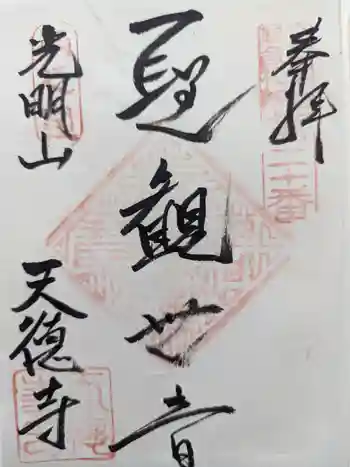 奉拝
聖観世音
光明山
天徳寺
二十番